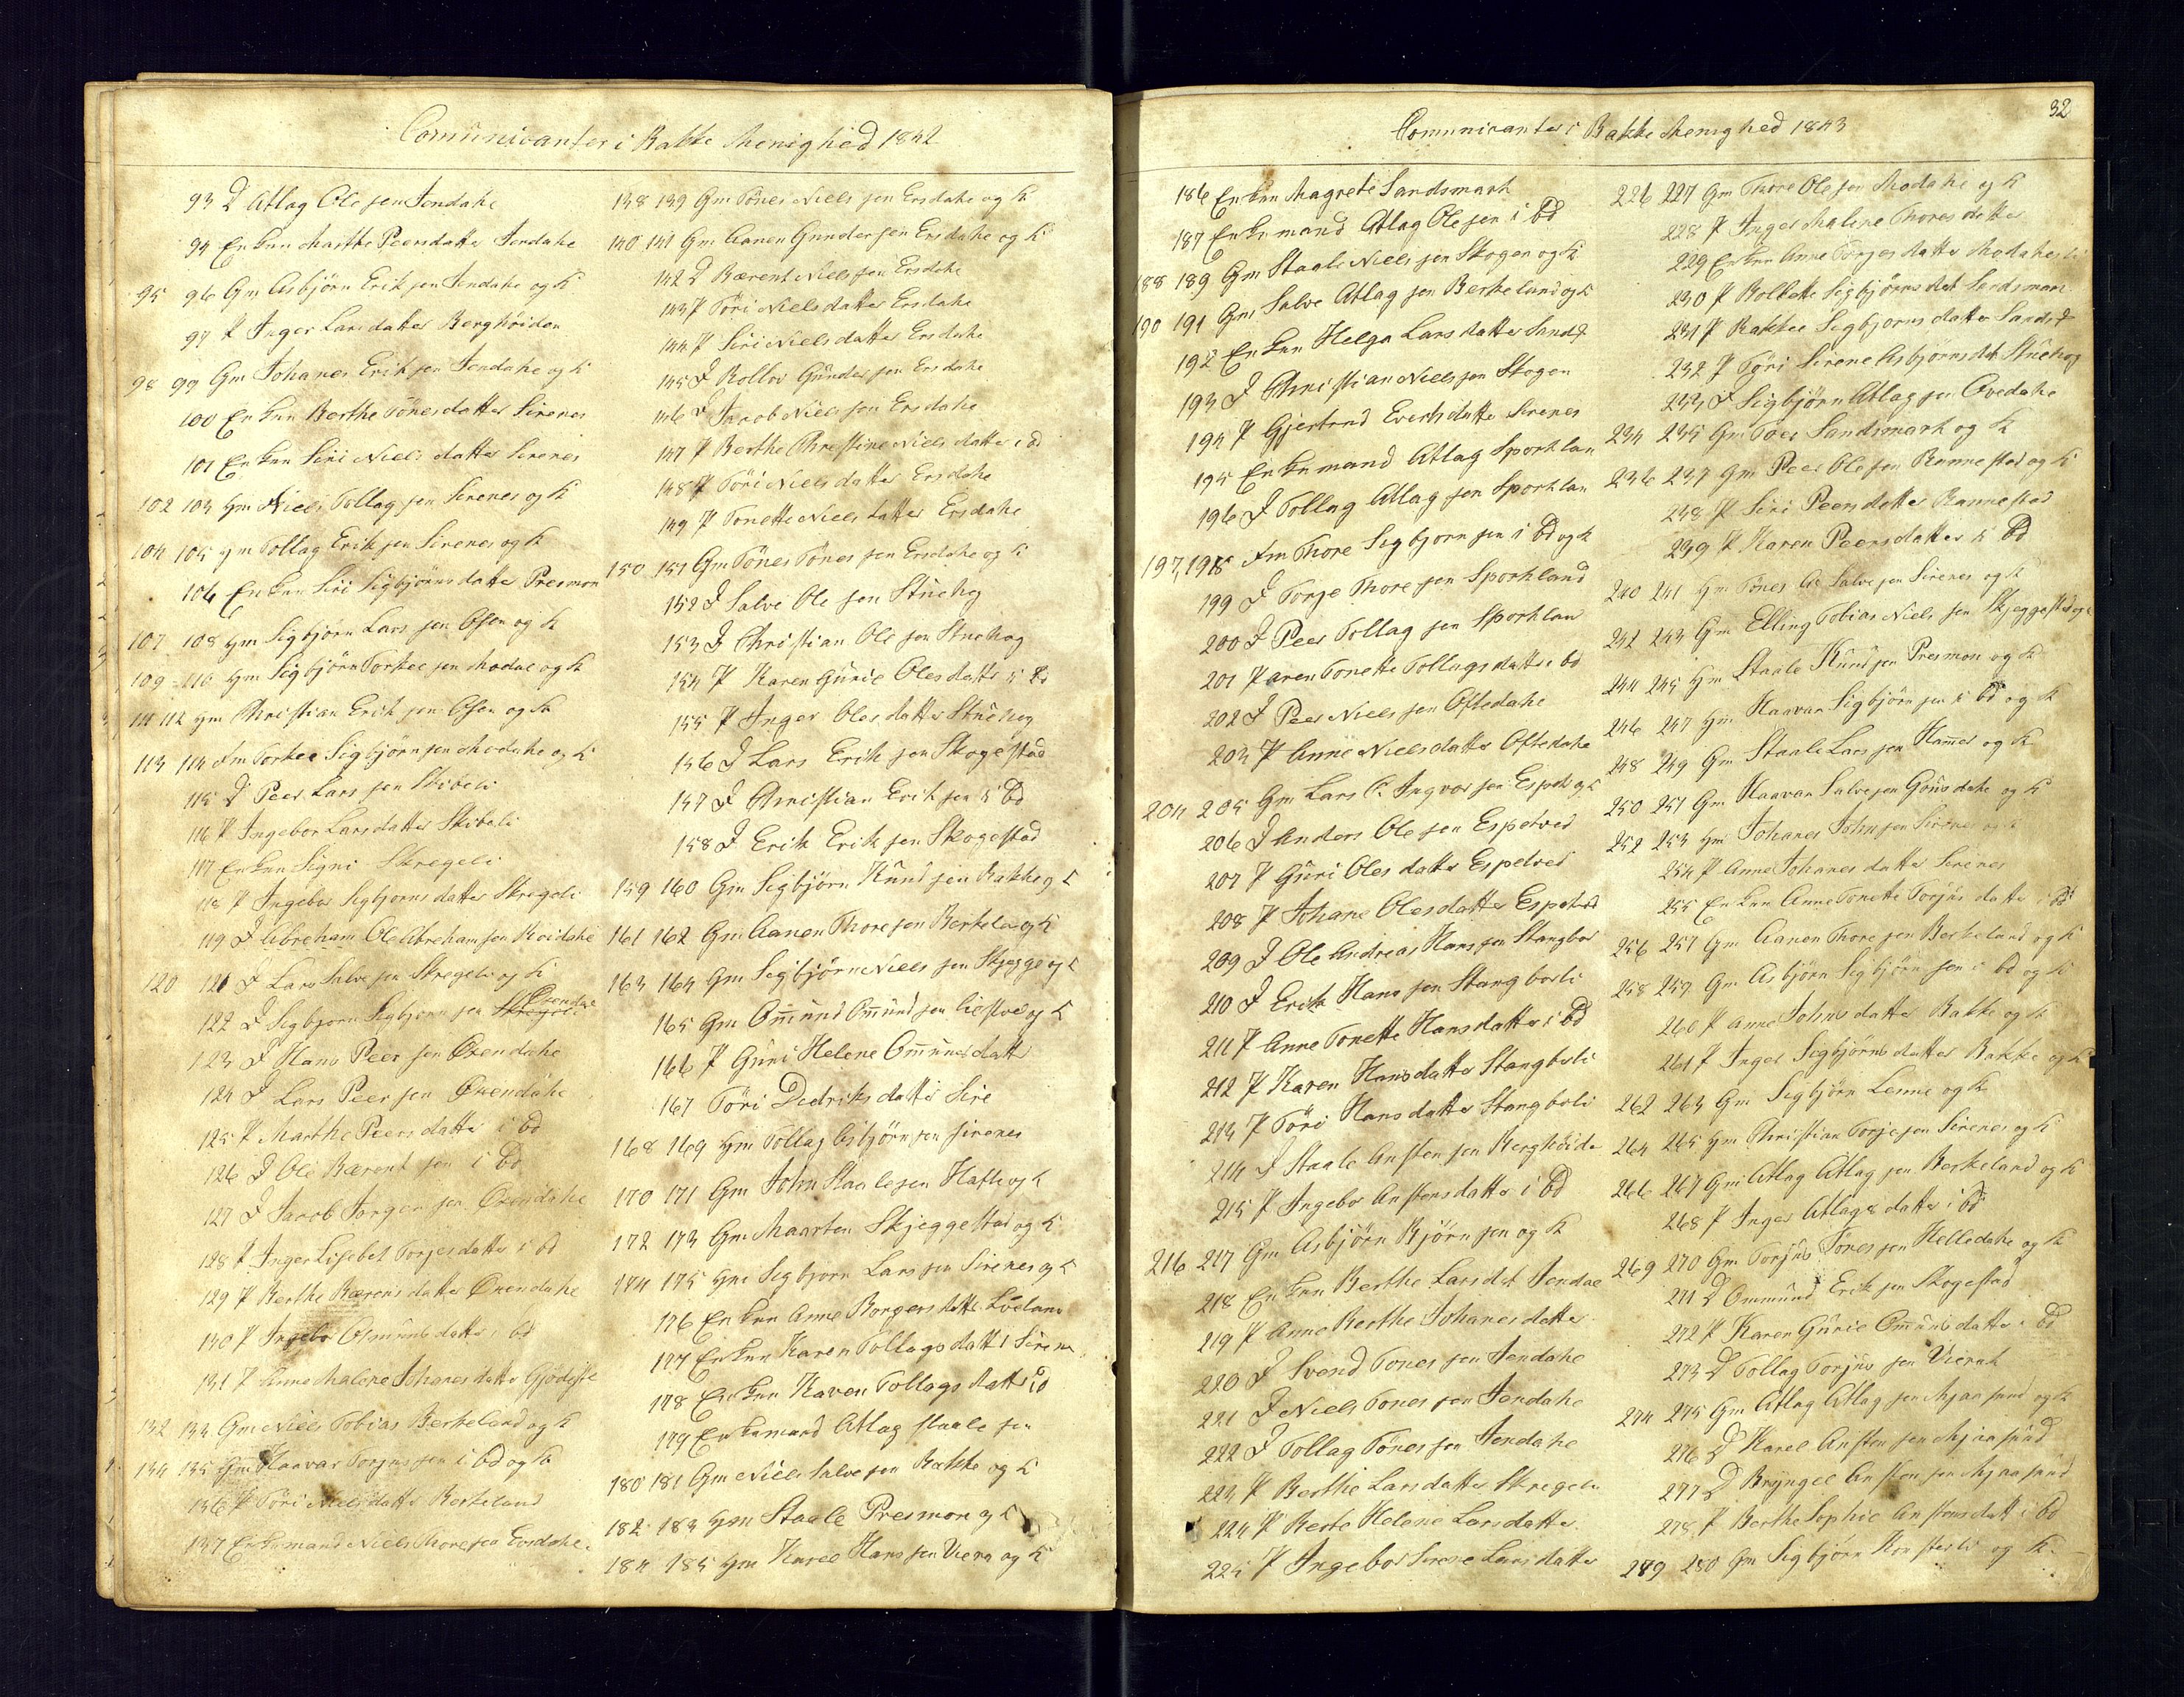 Comunicanter i Bakke Menighed 1842
93 D Atlag Ole sen Jendahe
94 Enkun Marthe Peersdatter Jendahe
95 96 Gm Asbjörn Erik sen Jendahe og K
97 P Inger Larsdatter Berghöiden
98 99 Gm Johanes Erik sen Jendahe og K
100 Enkun Berthe Tönesdatter Sirenes
101 Enkun Siri Niels datter Sirenes
102 103 Hm Niels Tollag sen Sirenes og K
104 105 Hm Tollag Erik sen Sirenes og K
106 Enkun Siri Sigbjörnsdatter Presmon
107 108 Hm Sigbjörn Lars sen Osen og K
109 110 Hm Sigbjörn Torkel sen Modal og K
111 112 Hm Christian Erik sen Osen og K
113 114 Fm Torkel Sigbjörn sen Modahe og K
115 D Peer Lars sen Skibeli
116 P Ingebor Larsdatter Skibeli
117 Enkun Signi Skregeli
118 P Ingebor Sigbjorns datter Skregeli
119 D Abreham Ole Abreham sen Roidahe
120 121 D Lars Salve sen Skregeli og K
122 D Sigbjorn Sigbjorn sen Skregeli Oxendae
123 D Hans Peer sen Oxendahe
124 D Lars Peer sen Oxendahe
125 P Marthe Peers datter i bd
126 D Ole Bærent sen i bd
127 D Jacob Jorgen sen Oxendahe
128 P Inger Lisebet Torjesdatter i bd
129 P Berthe Bærens datter Oxendahe
130 P Ingebor Osmunds datter i bd
131 P Anne Malene Johanes datter Gjödeste
132 133 Gm Niels Tobias Berkeland og K
134 135 Gm Haavar Torjus sen i bd og K
136 P Töri Niels datter Berkeland
137 Enkemand Niels Thore sen Eersdahe
138 139 Gm Tönes Niels sen Ersdahe og K
140 141 Gm Aanen Gunder sen Ersdahe og K
142 D Bærent Niels sen Ersdahe
143 P Töri Niels datter Ersdahe
144 P Siri Niels datter Ersdahe
145 D Rollov Gunder sen Ersdahe
146 D Jacob Niels sen Ersdahe
147 P Berthe Christine Niels datter i bd
148 P Töri Niels datter Ersdahe
149 P Tonette Niels datter Ersdahe
150 151 Gm Tönes Tönes sen Ersdahe og K
152 D Salve Ole sen Stuehog
153 D Christian Ole sen Stuehog
154 P Karen Gurie Oles datter i bd
155 P Inger Oles datter Stuehog
156 D Lars Erik sen Skogestad
157 D Christian Erik sen i bd
158 D Erik Erik sen Skogestad
159 160 Gm Sigbjörn Knud sen Bakke og K
161 162 Gm Aanen Thore sen Berkela og K
163 164 Gm Sigbjörn Niels sen Skjegge og K
165 Gm Omund Omund sen og K
166 P Guri Helene Omunds datter
167 Töri Dedriks datter Sire
168 169 Hm Tollag Asbjörn sen Sirenes
170 171 Gm John Staale sen og K
172 173 Gm Maarten Skjeggestad og K
174 175 Hm Sigbjorn Lars sen Sirenes og K
176 Enkun Anne Borgers datter
177 Enkun Karen Tollags datter Sirene
178 Enkun Karen Tollags datter i bd
179 Enkemand Atlag Staale sen
180 181 Gm Niels Salve sen Bakke og K
182 183 Hm Staale Presmon og K
184 185 Hm Karel Hans sen Viera og K
32
Comunicanter i Bakke Menighed 1843
186 Enkun Magrete Sandsmark
187 Enkemand Atlag Ole sen i bd
188 189 Gm Staale Niels sen Skogen og K
190 191 Gm Salve Atlag sen Berkeland og K
192 Enkun Helga Larsdatter
193 D Christian Niels sen Skogen
194 P Gjertrud Evertsdatter Sirenes
195 Enkemand Atlag Sporklan
196 D Tollag Atlag sen Sporklan
197, 198 Fm Thore Sigbjorn sen i bd og K
199 D Torje Thore sen Sporkland
200 D Peer Tollag sen Sporklan
201 P aren Tonette Tollagsdatter i bd
202 D Peer Niels sen Oftedahe
203 P Anne Nielsdatter Oftedahe
204 205 Gm Lars C. Ingvor sen Espet og K
206 D Anders Ole sen Espetved
207 P Guri Oles datter Espetved
208 P Johane Olesdatter Espetved
209 D Ole Andreas Hans sen Stangbor
210 D Erik Hans sen Stangborli
211 P Anne Tonette Hansdatter i bd
212 P Karen Hansdatter Stangborli
213 P Töri Hansdatter Stangborli
214 D Staale Ansten sen Berghöide
215 P Ingebor Anstensdatter i bd
216 217 Gm Asbjörn Bjørn sen og K
218 Enkun Berthe Larsdat Jendae
219 P Anne Berthe Johanes datter
220 D Svend Tönes sen Jendahe
221 D Niels Tönes sen Jendahe
222 D Tollag Tönes sen Jendahe
223 P Berthe Larsdatter Skregeli
224 P Berte Helene Larsdatter
225 P Ingebor Sirene Larsdatter
226 227 Gm Thore Ole sen Modahe og K
228 P Inger Malene Thores datter
229 Enkun Anne Törjes datter
230 P Rollette Sigbjörns dat Sandsmar
231 P Rakkel Sigbjorns datter Sands
232 P Töri Sirene Asbjörnsdt Stuehog
233 D Sigbjörn Atlag sen Ovedahe
234 235 Gm Peer Sandsmark og K
236 237 Gm Peer Ole sen Rannestad og K
238 P Siri Peersdatter Rannestad
239 P Karen Peersdatter i bd
240 241 Hm Tönes As Salve sen Sirenes og K
242 243 Gm Elling Tobias Niels sen Skjeggestad og K
244 245 Hm Staale Knud sen Presmon og K
246 247 Hm Haavar Sigbjörn sen i bd og K
248 249 Gm Staale Lars sen Hamer og K
250 251 Gm Haavar Salve sen og K
252 253 Hm Johanes John sen Sirenes og K
254 P Anne Johanes datter Sirenes
255 Enkun Anne Tonette Torjus datter i bd
256 257 Gm Aanen Thore sen Berkeland og K
258 259 Gm Asbjörn Sigbjörn sen i bd og K
260 P Anne Johns datter Bakke og K
261 P Inger Sigbjörns datter Bakke og K
262 263 Gm Sigbjörn Lenne og K
264 265 Hm Christian Torje sen Sirenes og K
266 267 Gm Atlag Atlag sen Berkeland og K
268 P Inger Atlags datter i bd
269 270 Gm Torjus Tönes sen Helledahe og K
271 D Ommund Erik sen Skogestad
272 P Karen Gurie Omunds datter i bd
273 D Tollag Torjus sen Vierak
274 275 Gm Atlag Atlag sen Mjaasund og K
276 D Karel Ansten sen Mjaasund
277 D Bryngel Ansten sen Mjaasund
278 P Berthe Sophie Anstensdatt i bd
279 280 Gm Sigbjörn og K